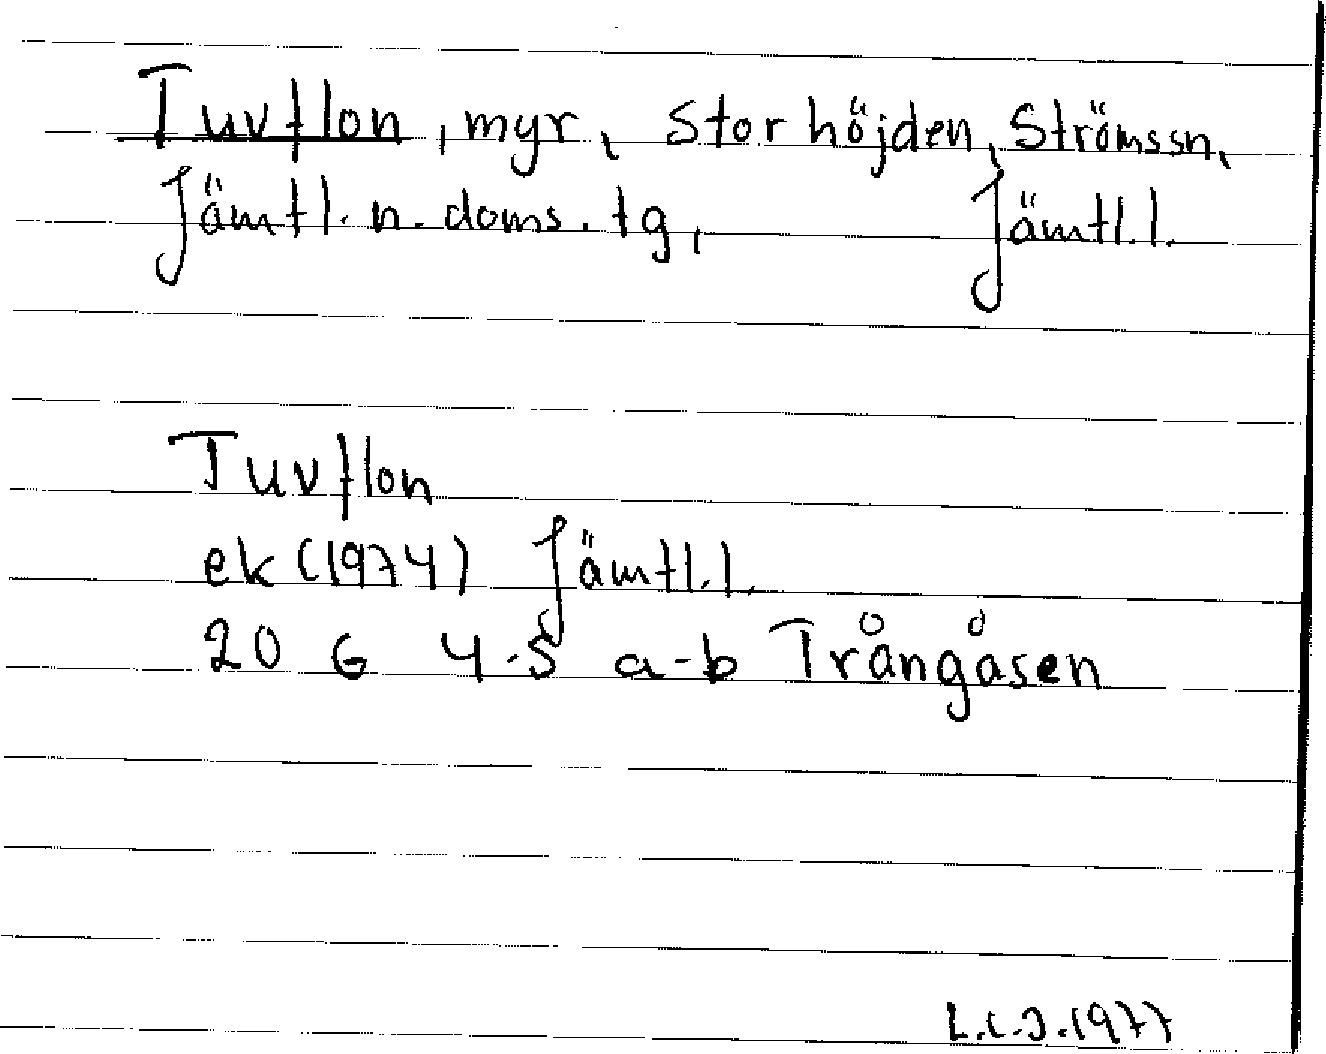 Tuvflon, myr, Storhöjden, Strömssn,
Jämtl. n. doms. tg, Jämtl. l.
Tuvflon
ek (1974) Jämtl. l.
20 G 4-5 a-b Trångåsen
L.C.J. 1977